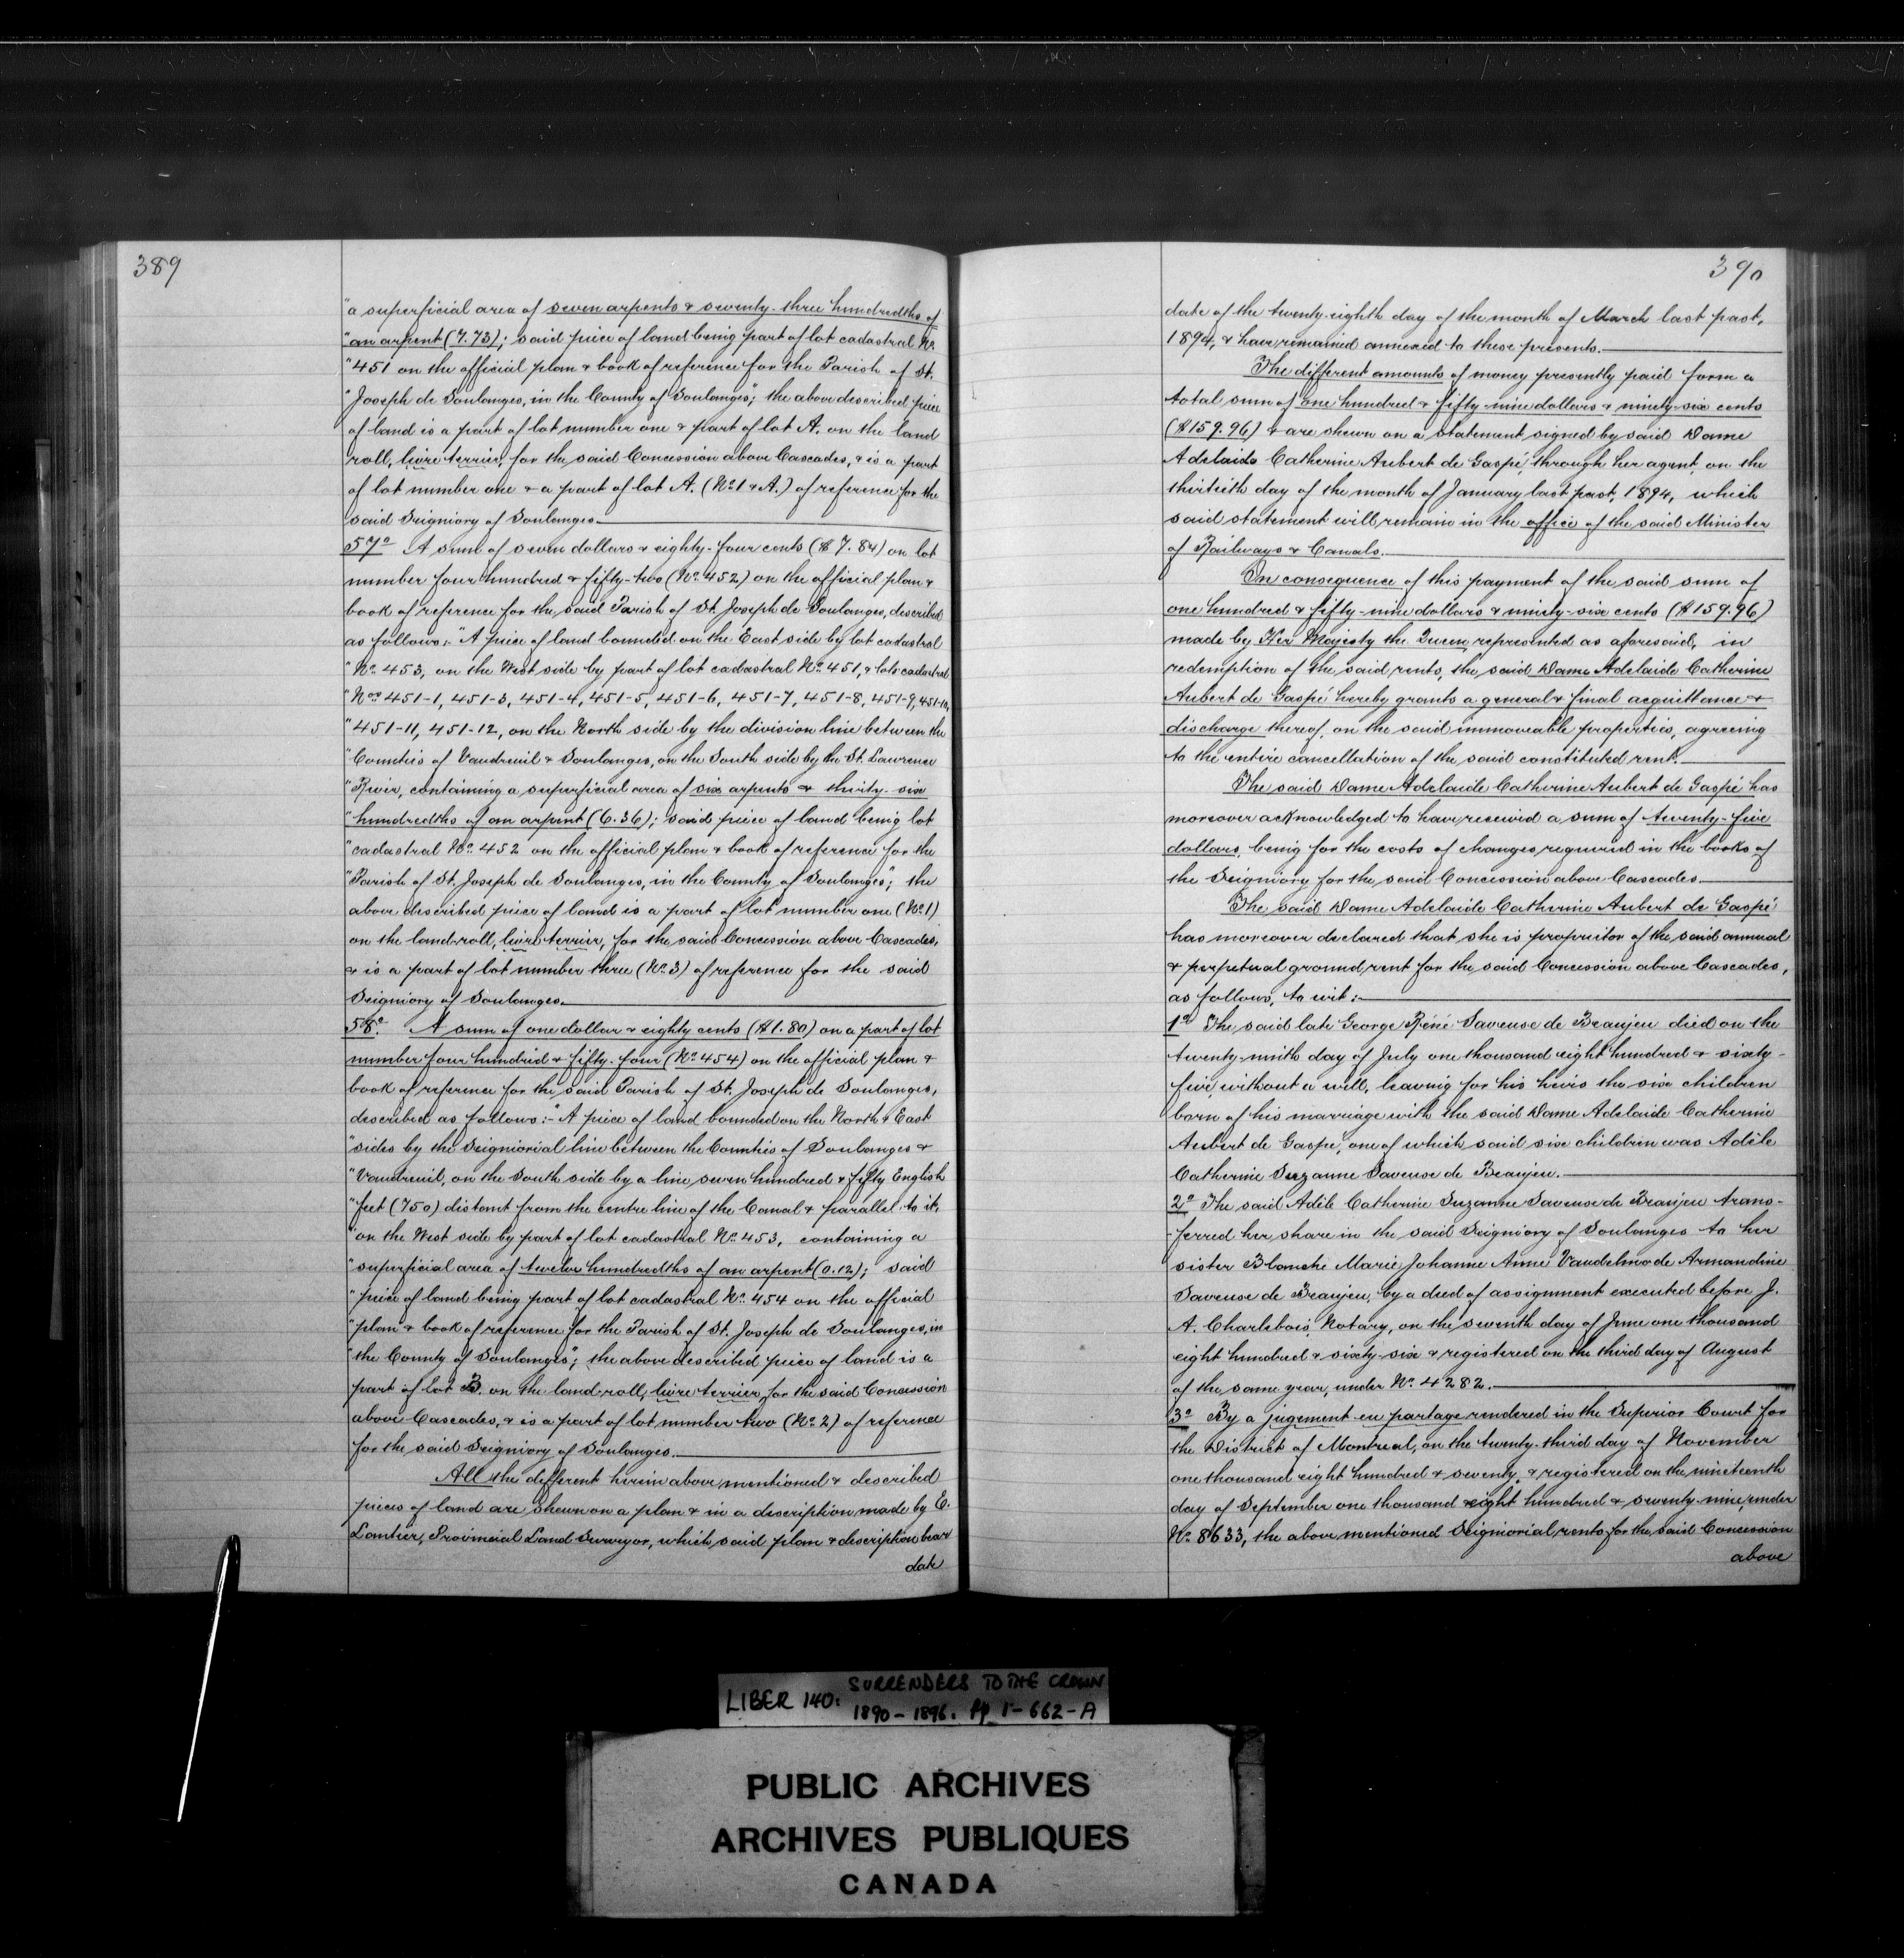 389
"a superficial area of seven arpents & seventy-three hundredths of
"an arpent (7.73); said piece of land being part of lot cadastral No.
"451 on the official plan & book of reference for the Parish of St.
"Joseph de Soulanges, in the County of Soulanges"; the above described piece
of land is a part of lot number one & part of lot A. on the land
roll, livre terrier, for the said Concession above Cascades, & is a part
of lot number one & a part of lot A. (No. 1 & A.) of reference for the
said Seigniory of Soulanges.
57o A sum of seven dollars & eighty-four cents ($7.84) on lot
number four hundred & fifty-two (No. 452) on the official plan &
book of reference for the said Parish of St. Joseph de Soulanges, described
as follows:- "A piece of land bounded on the East side by lot cadastral
"No. 453, on the West side by part of lot cadastral No. 451, & lots cadastral
"Nos. 451-1, 451-3, 451-4, 451-5, 451-6, 451-7, 451-8, 451-9, 451-10,
"451-11, 451-12, on the North side by the division line between the
"Counties of Vaudreuil & Soulanges, on the South side by the St. Lawrence
"River, containing a superficial area of six arpents & thirty-six
"hundredths of an arpent (6.36); said piece of land being lot
"cadastral No. 452 on the official plan & book of reference for the
"Parish of St. Joseph de Soulanges, in the County of Soulanges"; the
above described piece of land is a part of lot number one (No. 1)
on the land-roll, livre terrier, for the said Concession above Cascades,
& is a part of lot number three (No. 3) of reference for the said
Seigniory of Soulanges.
58o. A sum of one dollar & eighty cents ($1.80) on a part of lot
number four hundred & fifty-four (No. 454) on the official plan &
book of reference for the said Parish of St. Joseph de Soulanges,
described as follows:- "A piece of land bounded on the North & East
"sides by the Seigniorial line between the Counties of Soulanges &
"Vaudreuil, on the South side by a line seven hundred & fifty English
"feet (750) distant from the centre line of the Canal & parallel to it,
"on the West side by part of lot cadastral No. 453, containing a
"superficial area of twelve hundredths of an arpent (0.12); said
"piece of land being part of lot cadastral No. 454 on the official
"plan & book of reference for the Parish of St. Joseph de Soulanges, in
"the County of Soulanges"; the above described piece of land is a
part of lot B. on the land-roll, livre terrier, for the said Concession
above Cascades, & is a part of lot number two (No. 2) of reference
for the said Seigniory of Soulanges.
All the different herein above mentioned & described
pieces of land are shewn on a plan & in a description made by E.
Lantier, Provincial Land Surveyor, which said plan & description bear
date
390
date of the twenty-eighth day of the month of March last past,
1894, & have remained annexed to these presents.
The different amounts of money presently paid form a
total sum of one hundred & fifty-nine dollars & ninety-six cents
($159.96) & are shewn on a statement signed by said Dame
Adelaide Catherine Aubert de Gaspé, through her agent, on the
thirtieth day of the month of January last past, 1894, which
said statement will remain in the office of the said Minister
of Railways & Canals.
In consequence of this payment of the said sum of
one hundred & fifty-nine dollars & ninety-six cents ($159.96)
made by Her Majesty the Queen, represented as aforesaid, in
redemption of the said rents, the said Dame Adelaide Catherine
Aubert de Gaspé hereby grants a general & final acquittance &
discharge thereof, on the said immoveable properties, agreeing
to the entire cancellation of the said constituted rent.
The said Dame Adelaide Catherine Aubert de Gaspé has
moreover acknowledged to have received a sum of twenty-five
dollars, being for the costs of changes required in the books of
the Seigniory for the said Concession above Cascades.
The said Dame Adelaide Catherine Aubert de Gaspé
has moreover declared that she is proprietor of the said annual
& perpetual ground rent for the said Concession above Cascades,
as follows, to wit:-
1o The said late George Réné Saveuse de Beaujeu died on the
twenty-ninth day of July one thousand eight hundred & sixty-
five, without a will, leaving for his heirs the six children
born of his marriage with the said Dame Adelaide Catherine
Aubert de Gaspé, one of which said six children was Adèle
Catherine Suzanne Saveuse de Beaujeu.
2o The said Adèle Catherine Suzanne Saveuse de Beaujeu trans-
-ferred her share in the said Seigniory of Soulanges to her
sister Blanche Marie Johanne Anne Vaudelmode Armandine
Saveuse de Beaujeu, by a deed of assignment executed before J.
A. Charlebois, Notary, on the seventh day of June one thousand
eight hundred & sixty-six & registered on the third day of August
of the same year, under No. 4282.
3o By a jugement en partage rendered in the Superior Court for
the District of Montreal, on the twenty-third day of November
one thousand eight hundred & seventy, & registered on the nineteenth
day of September one thousand eight hundred & seventy-nine, under
No. 8633, the above mentioned Seigniorial rents for the said Concession
above
LIBER 140: SURRENDERS TO THE CROWN
1890-1896. Pp 1-662-A
PUBLIC ARCHIVES
ARCHIVES PUBLIQUES
CANADA